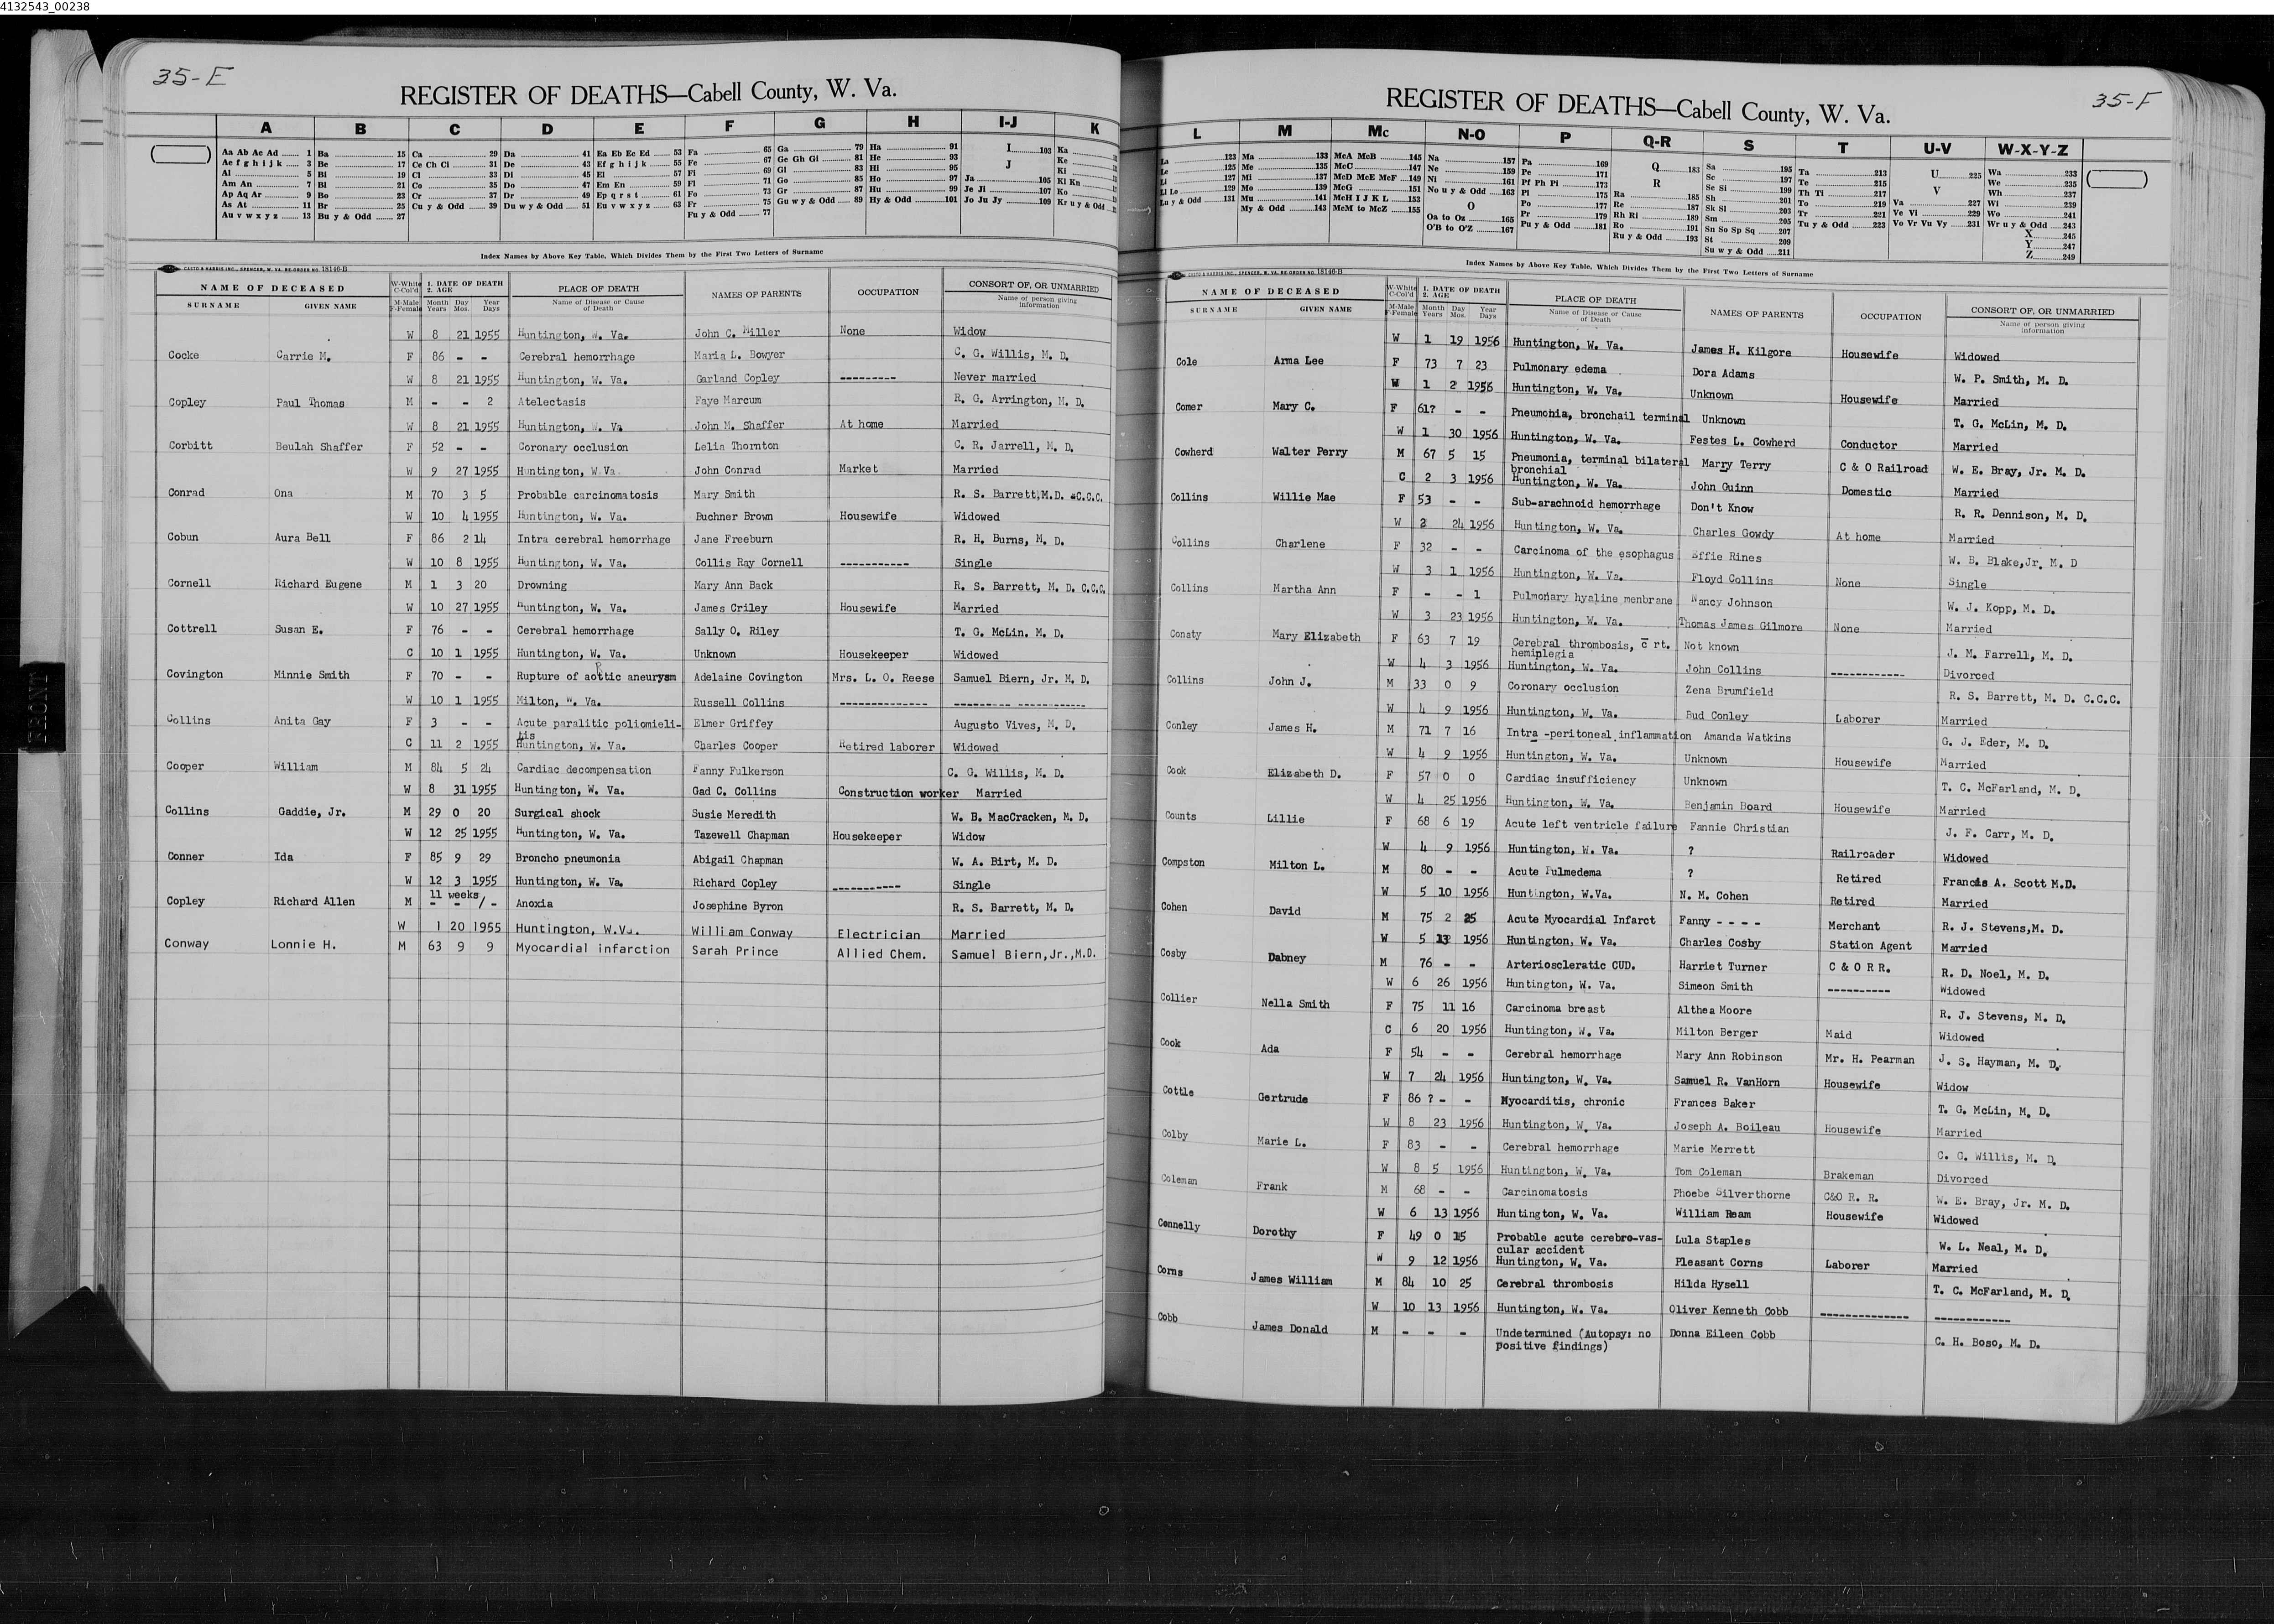 4132543_00238
35-E
REGISTER OF DEATHS—Cabell County, W. Va.
A B C D E F G H I-J K
Aa Ab Ac Ad 1 Ba 15 Ca 29 Da 41 Ea Eb Ec Ed 53 Fa 65 Ga 79 Ha 91 I 103 Ka
Ae f g h i j k 3 Be 17 Ce Ch Ci 31 De 43 Ef g h i j k 55 Fe 67 Ge Gh Gi 81 He 93 J Ke
Al 5 Bi 19 Cl 33 Di 45 El 57 Fi 69 Gl 83 Hi 95 Ki
Am An 7 Bl 21 Co 35 Do 47 Em En 59 Fl 71 Go 85 Ho 97 Ja 105 Kl Kn
Ap Aq Ar 9 Bo 23 Cr 37 Dr 49 Ep q r s t 61 Fo 73 Gr 87 Hu 99 Je Ji 107 Ko
As At 11 Br 25 Cu y & Odd 39 Du w y & Odd 51 Eu v w x y z 63 Fr 75 Gu w y & Odd 89 Hy & Odd 101 Jo Ju Jy 109 Kr u y & Odd
Au v w x y z 13 Bu y & Odd 27 Fu y & Odd 77
Index Names by Above Key Table, Which Divides Them by the First Two Letters of Surname
CASTO & HARRIS INC., SPENCER, W. VA. RE-ORDER NO. 18146-B
NAME OF DECEASED W-White C-Col'd 1. DATE OF DEATH 2. AGE PLACE OF DEATH NAMES OF PARENTS OCCUPATION CONSORT OF, OR UNMARRIED
SURNAME GIVEN NAME M-Male F-Female Month Day Year Years Mos. Days Name of Disease or Cause of Death Name of person giving information
W 8 21 1955 Huntington, W. Va. John C. Miller None Widow
Cocke Carrie M. F 86 - - Cerebral hemorrhage Maria L. Bowyer C. G. Willis, M. D.
W 8 21 1955 Huntington, W. Va. Garland Copley --------- Never married
Copley Paul Thomas M - - 2 Atelectasis Faye Marcum R. G. Arrington, M. D.
W 8 21 1955 Huntington, W. Va John M. Shaffer At home Married
Corbitt Beulah Shaffer F 52 - - Coronary occlusion Lelia Thornton C. R. Jarrell, M. D.
W 9 27 1955 Huntington, W.Va. John Conrad Market Married
Conrad Ona M 70 3 5 Probable carcinomatosis Mary Smith R. S. Barrett,M.D. &C.C.C.
W 10 4 1955 Huntington, W. Va. Buchner Brown Housewife Widowed
Cobun Aura Bell F 86 2 14 Intra cerebral hemorrhage Jane Freeburn R. H. Burns, M. D.
W 10 8 1955 Huntington, W. Va. Collis Ray Cornell ----------- Single
Cornell Richard Eugene M 1 3 20 Drowning Mary Ann Back R. S. Barrett, M. D. C.C.C.
W 10 27 1955 Huntington, W. Va. James Criley Housewife Married
Cottrell Susan E. F 76 - - Cerebral hemorrhage Sally O. Riley T. G. McLin. M. D.
C 10 1 1955 Huntington, W. Va. Unknown Housekeeper Widowed
Covington Minnie Smith F 70 - - Rupture of aottic aneurysm Adelaine Covington Mrs. L. O. Reese Samuel Biern, Jr. M. D.
W 10 1 1955 Milton, W. Va. Russell Collins -------------- --------- ------------
Collins Anita Gay F 3 - - Acute paralitic poliomieli- Elmer Griffey Augusto Vives, M. D.
tis
C 11 2 1955 Huntington, W. Va. Charles Cooper Retired laborer Widowed
Cooper William M 84 5 24 Cardiac decompensation Fanny Fulkerson C. G. Willis, M. D.
W 8 31 1955 Huntington, W. Va. Gad C. Collins Construction worker Married
Collins Gaddie, Jr. M 29 0 20 Surgical shock Susie Meredith W. B. MacCracken, M. D.
W 12 25 1955 Huntington, W. Va. Tazewell Chapman Housekeeper Widow
Conner Ida F 85 9 29 Broncho pneumonia Abigail Chapman W. A. Birt, M. D.
W 12 3 1955 Huntington, W. Va. Richard Copley ----------- Single
11 weeks
Copley Richard Allen M - - / - Anoxia Josephine Byron R. S. Barrett, M. D.
W 1 20 1955 Huntington, W.Va. William Conway Electrician Married
Conway Lonnie H. M 63 9 9 Myocardial infarction Sarah Prince Allied Chem. Samuel Biern,Jr.,M.D.
FRONT
35-F
REGISTER OF DEATHS—Cabell County, W. Va.
L M Mc N-O P Q-R S T U-V W-X-Y-Z
La 123 Ma 133 McA McB 145 Na 157 Pa 169 Q 183 Sa 195 Ta 213 U 225 Wa 233
Le 125 Me 135 McC 147 Ne 159 Pe 171 R Sc 197 Te 215 V We 235
Li 127 Mi 137 McD McE McF 149 Ni 161 Pf Ph Pi 173 Ra 185 Se Si 199 Th Ti 217 Va 227 Wh 237
Ll Lo 129 Mo 139 McG 151 No u y & Odd 163 Pl 175 Re 187 Sh 201 To 219 Ve Vi 229 Wi 239
Lu y & Odd 131 Mu 141 McH I J K L 153 O Po 177 Rh Ri 189 Sk Sl 203 Tr 221 Vo Vr Vu Vy 231 Wo 241
My & Odd 143 McM to McZ 155 Oa to Oz 165 Pr 179 Ro 191 Sm 205 Tu y & Odd 223 Wr u y & Odd 243
O'B to O'Z 167 Pu y & Odd 181 Ru y & Odd 193 Sn So Sp Sq 207 X 245
St 209 Y 247
Su w y & Odd 211 Z 249
Index Names by Above Key Table, Which Divides Them by the First Two Letters of Surname
CASTO & HARRIS INC., SPENCER, W. VA. RE-ORDER NO. 18146-B
NAME OF DECEASED W-White C-Col'd 1. DATE OF DEATH 2. AGE PLACE OF DEATH NAMES OF PARENTS OCCUPATION CONSORT OF, OR UNMARRIED
SURNAME GIVEN NAME M-Male F-Female Month Day Year Years Mos. Days Name of Disease or Cause of Death Name of person giving information
W 1 19 1956 Huntington, W. Va. James H. Kilgore Housewife Widowed
Cole Arma Lee F 73 7 23 Pulmonary edema Dora Adams W. P. Smith, M. D.
W 1 2 1956 Huntington, W. Va. Unknown Housewife Married
Comer Mary C. F 61? - - Pneumonia, bronchail terminal Unknown T. G. McLin, M. D.
W 1 30 1956 Huntington, W. Va. Festes L. Cowherd Conductor Married
Cowherd Walter Perry M 67 5 15 Pneumonia, terminal bilateral Marry Terry C & O Railroad W. E. Bray, Jr. M. D.
bronchial
C 2 3 1956 Huntington, W. Va. John Guinn Domestic Married
Collins Willie Mae F 53 - - Sub-arachnoid hemorrhage Don't Know R. R. Dennison, M. D.
W 2 24 1956 Huntington, W. Va. Charles Gowdy At home Married
Collins Charlene F 32 - - Carcinoma of the esophagus Effie Rines W. B. Blake,Jr. M. D
W 3 1 1956 Huntington, W. Va. Floyd Collins None Single
Collins Martha Ann F - - 1 Pulmonary hyaline menbrane Nancy Johnson W. J. Kopp, M. D.
W 3 23 1956 Huntington, W. Va. Thomas James Gilmore None Married
Conaty Mary Elizabeth F 63 7 19 Cerebral thrombosis, c̄ rt. Not known J. M. Farrell, M. D.
hemiplegia
W 4 3 1956 Huntington, W. Va. John Collins ------------ Divorced
Collins John J. M 33 0 9 Coronary occlusion Zena Brumfield R. S. Barrett, M. D. C.C.C.
W 4 9 1956 Huntington, W. Va. Bud Conley Laborer Married
Conley James H. M 71 7 16 Intra -peritoneal inflammation Amanda Watkins G. J. Eder, M. D.
W 4 9 1956 Huntington, W. Va. Unknown Housewife Married
Cook Elizabeth D. F 57 0 0 Cardiac insufficiency Unknown T. C. McFarland, M. D.
W 4 25 1956 Huntington, W. Va. Benjamin Board Housewife Married
Counts Lillie F 68 6 19 Acute left ventricle failure Fannie Christian J. F. Carr, M. D.
W 4 9 1956 Huntington, W. Va. ? Railroader Widowed
Compston Milton L. M 80 - - Acute Pulmedema ? Retired Francis A. Scott M.D.
W 5 10 1956 Huntington, W.Va. N. M. Cohen Retired Married
Cohen David M 75 2 25 Acute Myocardial Infarct Fanny - - - - Merchant R. J. Stevens,M. D.
W 5 13 1956 Huntington, W. Va. Charles Cosby Station Agent Married
Cosby Dabney M 76 - - Arterioscleratic CUD. Harriet Turner C & O R R. R. D. Noel, M. D.
W 6 26 1956 Huntington, W. Va. Simeon Smith ---------- Widowed
Collier Nella Smith F 75 11 16 Carcinoma breast Althea Moore R. J. Stevens, M. D.
C 6 20 1956 Huntington, W. Va. Milton Berger Maid Widowed
Cook Ada F 54 - - Cerebral hemorrhage Mary Ann Robinson Mr. H. Pearman J. S. Hayman, M. D.
W 7 24 1956 Huntington, W. Va. Samuel R. VanHorn Housewife Widow
Cottle Gertrude F 86 ? - - Myocarditis, chronic Frances Baker T. G. McLin, M. D.
W 8 23 1956 Huntington, W. Va. Joseph A. Boileau Housewife Married
Colby Marie L. F 83 - - Cerebral hemorrhage Marie Merrett C. G. Willis, M. D.
W 8 5 1956 Huntington, W. Va. Tom Coleman Brakeman Divorced
Coleman Frank M 68 - - Carcinomatosis Phoebe Silverthorne C&O R. R. W. E. Bray, Jr. M. D.
W 6 13 1956 Huntington, W. Va. William Ream Housewife Widowed
Connelly Dorothy F 49 0 15 Probable acute cerebro-vas- Lula Staples W. L. Neal, M. D.
cular accident
W 9 12 1956 Huntington, W. Va. Pleasant Corns Laborer Married
Corns James William M 84 10 25 Cerebral thrombosis Hilda Hysell T. C. McFarland, M. D.
W 10 13 1956 Huntington, W. Va. Oliver Kenneth Cobb -------------- ------------
Cobb James Donald M - - - Undetermined (Autopsy: no Donna Eileen Cobb C. H. Boso, M. D.
positive findings)